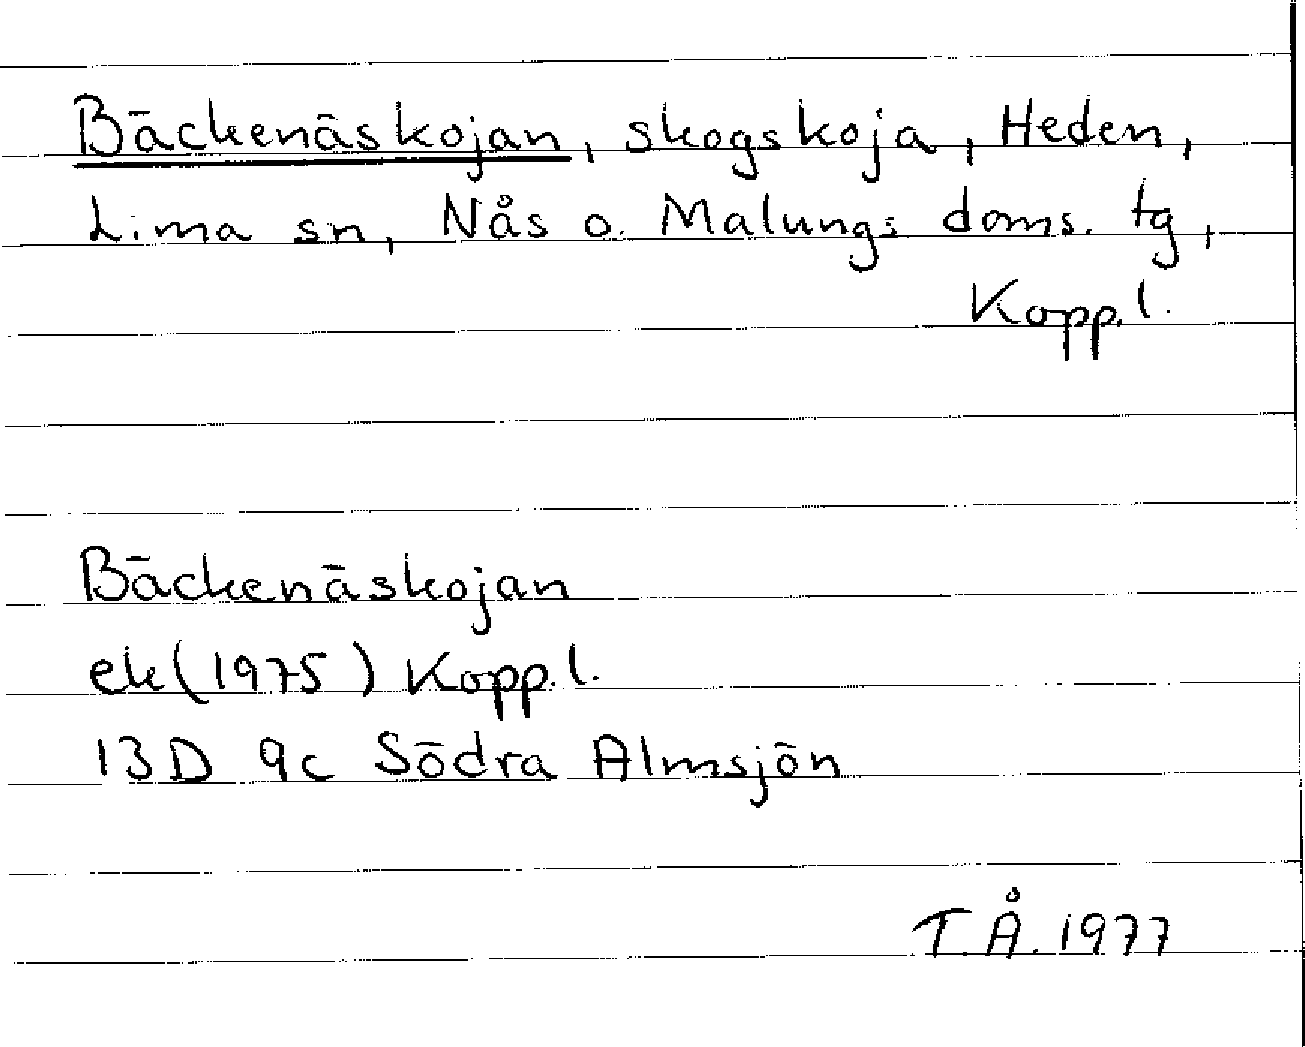 Bäckenäskojan, skogskoja, Heden,
Lima sn, Nås o. Malungs doms. tg,
Kopp.l.
Bäckenäskojan
ek(1975) Kopp.l.
13D 9c Södra Almsjön
T.Å. 1977